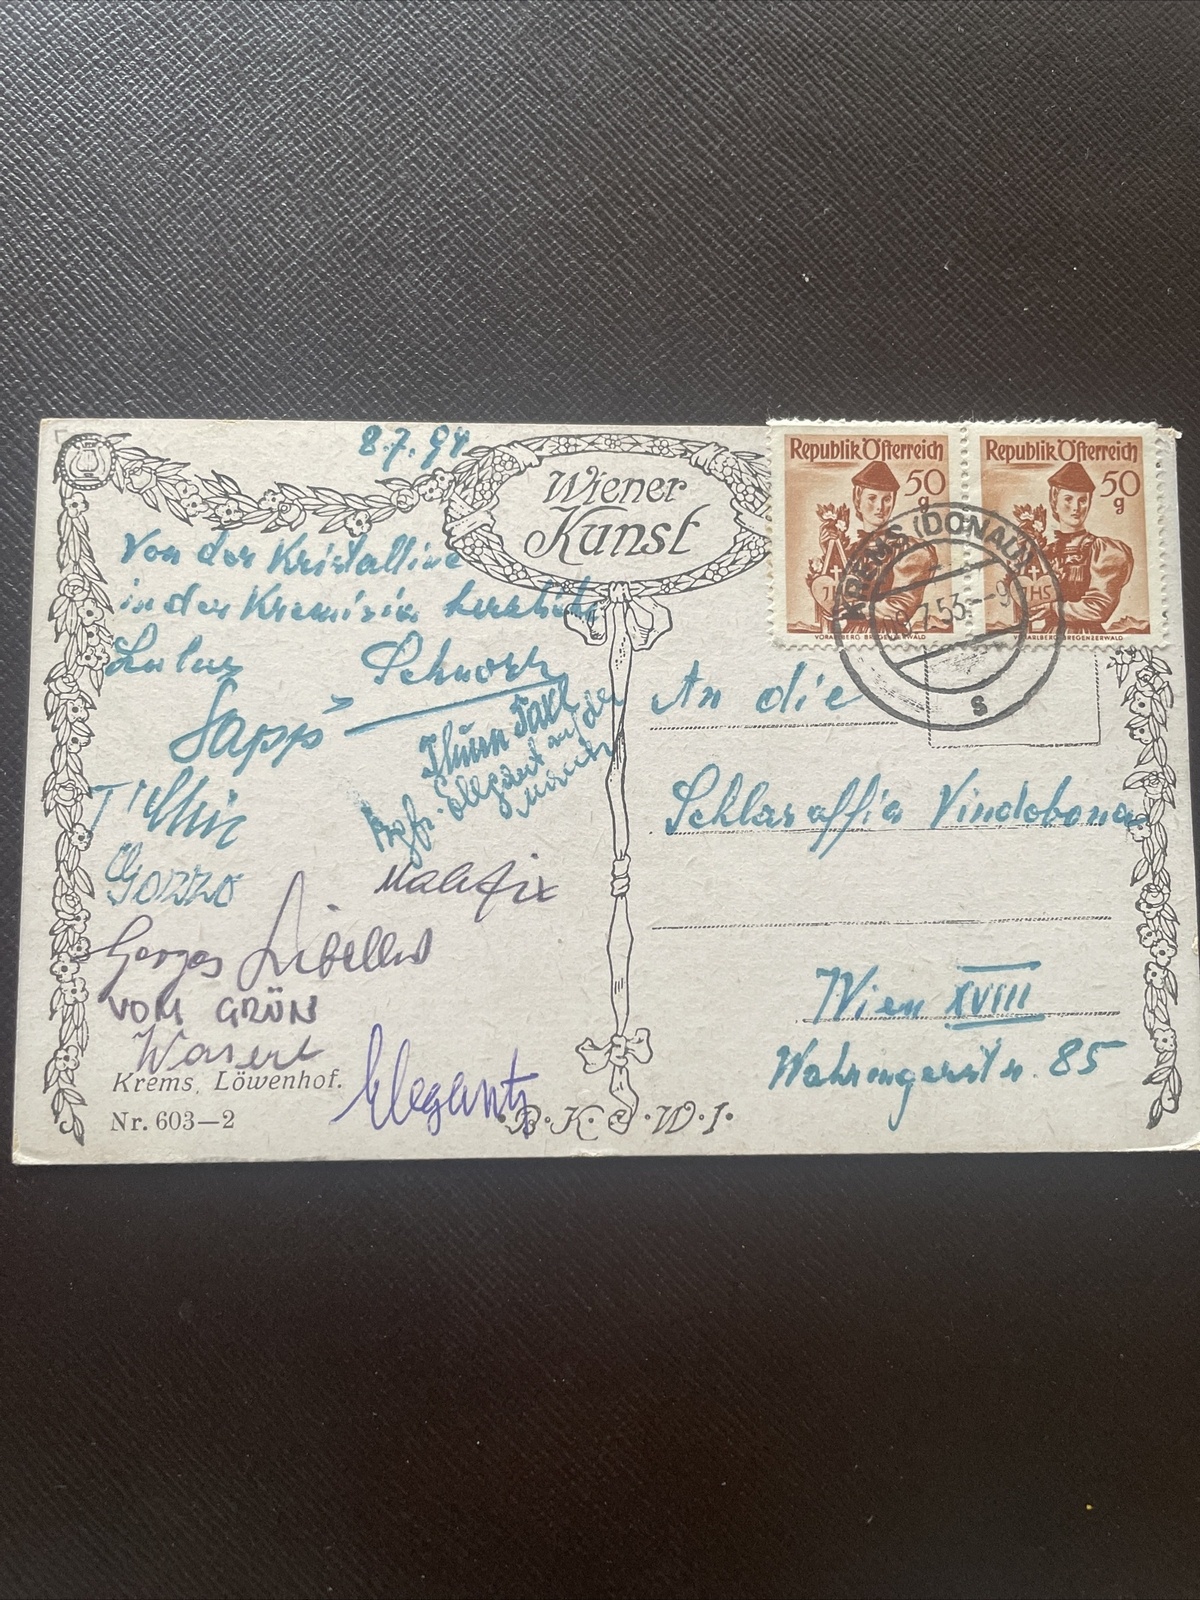 8.7.94
Wiener
Kunst
Von der Kristalline
in der Kremisia herzliche
Lulus
Schnorr
Sapp
Gozzo
Malefix
Georges Libellus
VOM GRÜN
Krems, Löwenhof.
Nr. 603—2
Elegants
B·K·W·I·
Republik Österreich
50 g
VORARLBERG BREGENZERWALD
Republik Österreich
50 g
VORARLBERG BREGENZERWALD
KREMS (DONAU)
7.53--9
s
An die
Schlaraffia Vindobona
Wien XVIII
Währingerstr. 85